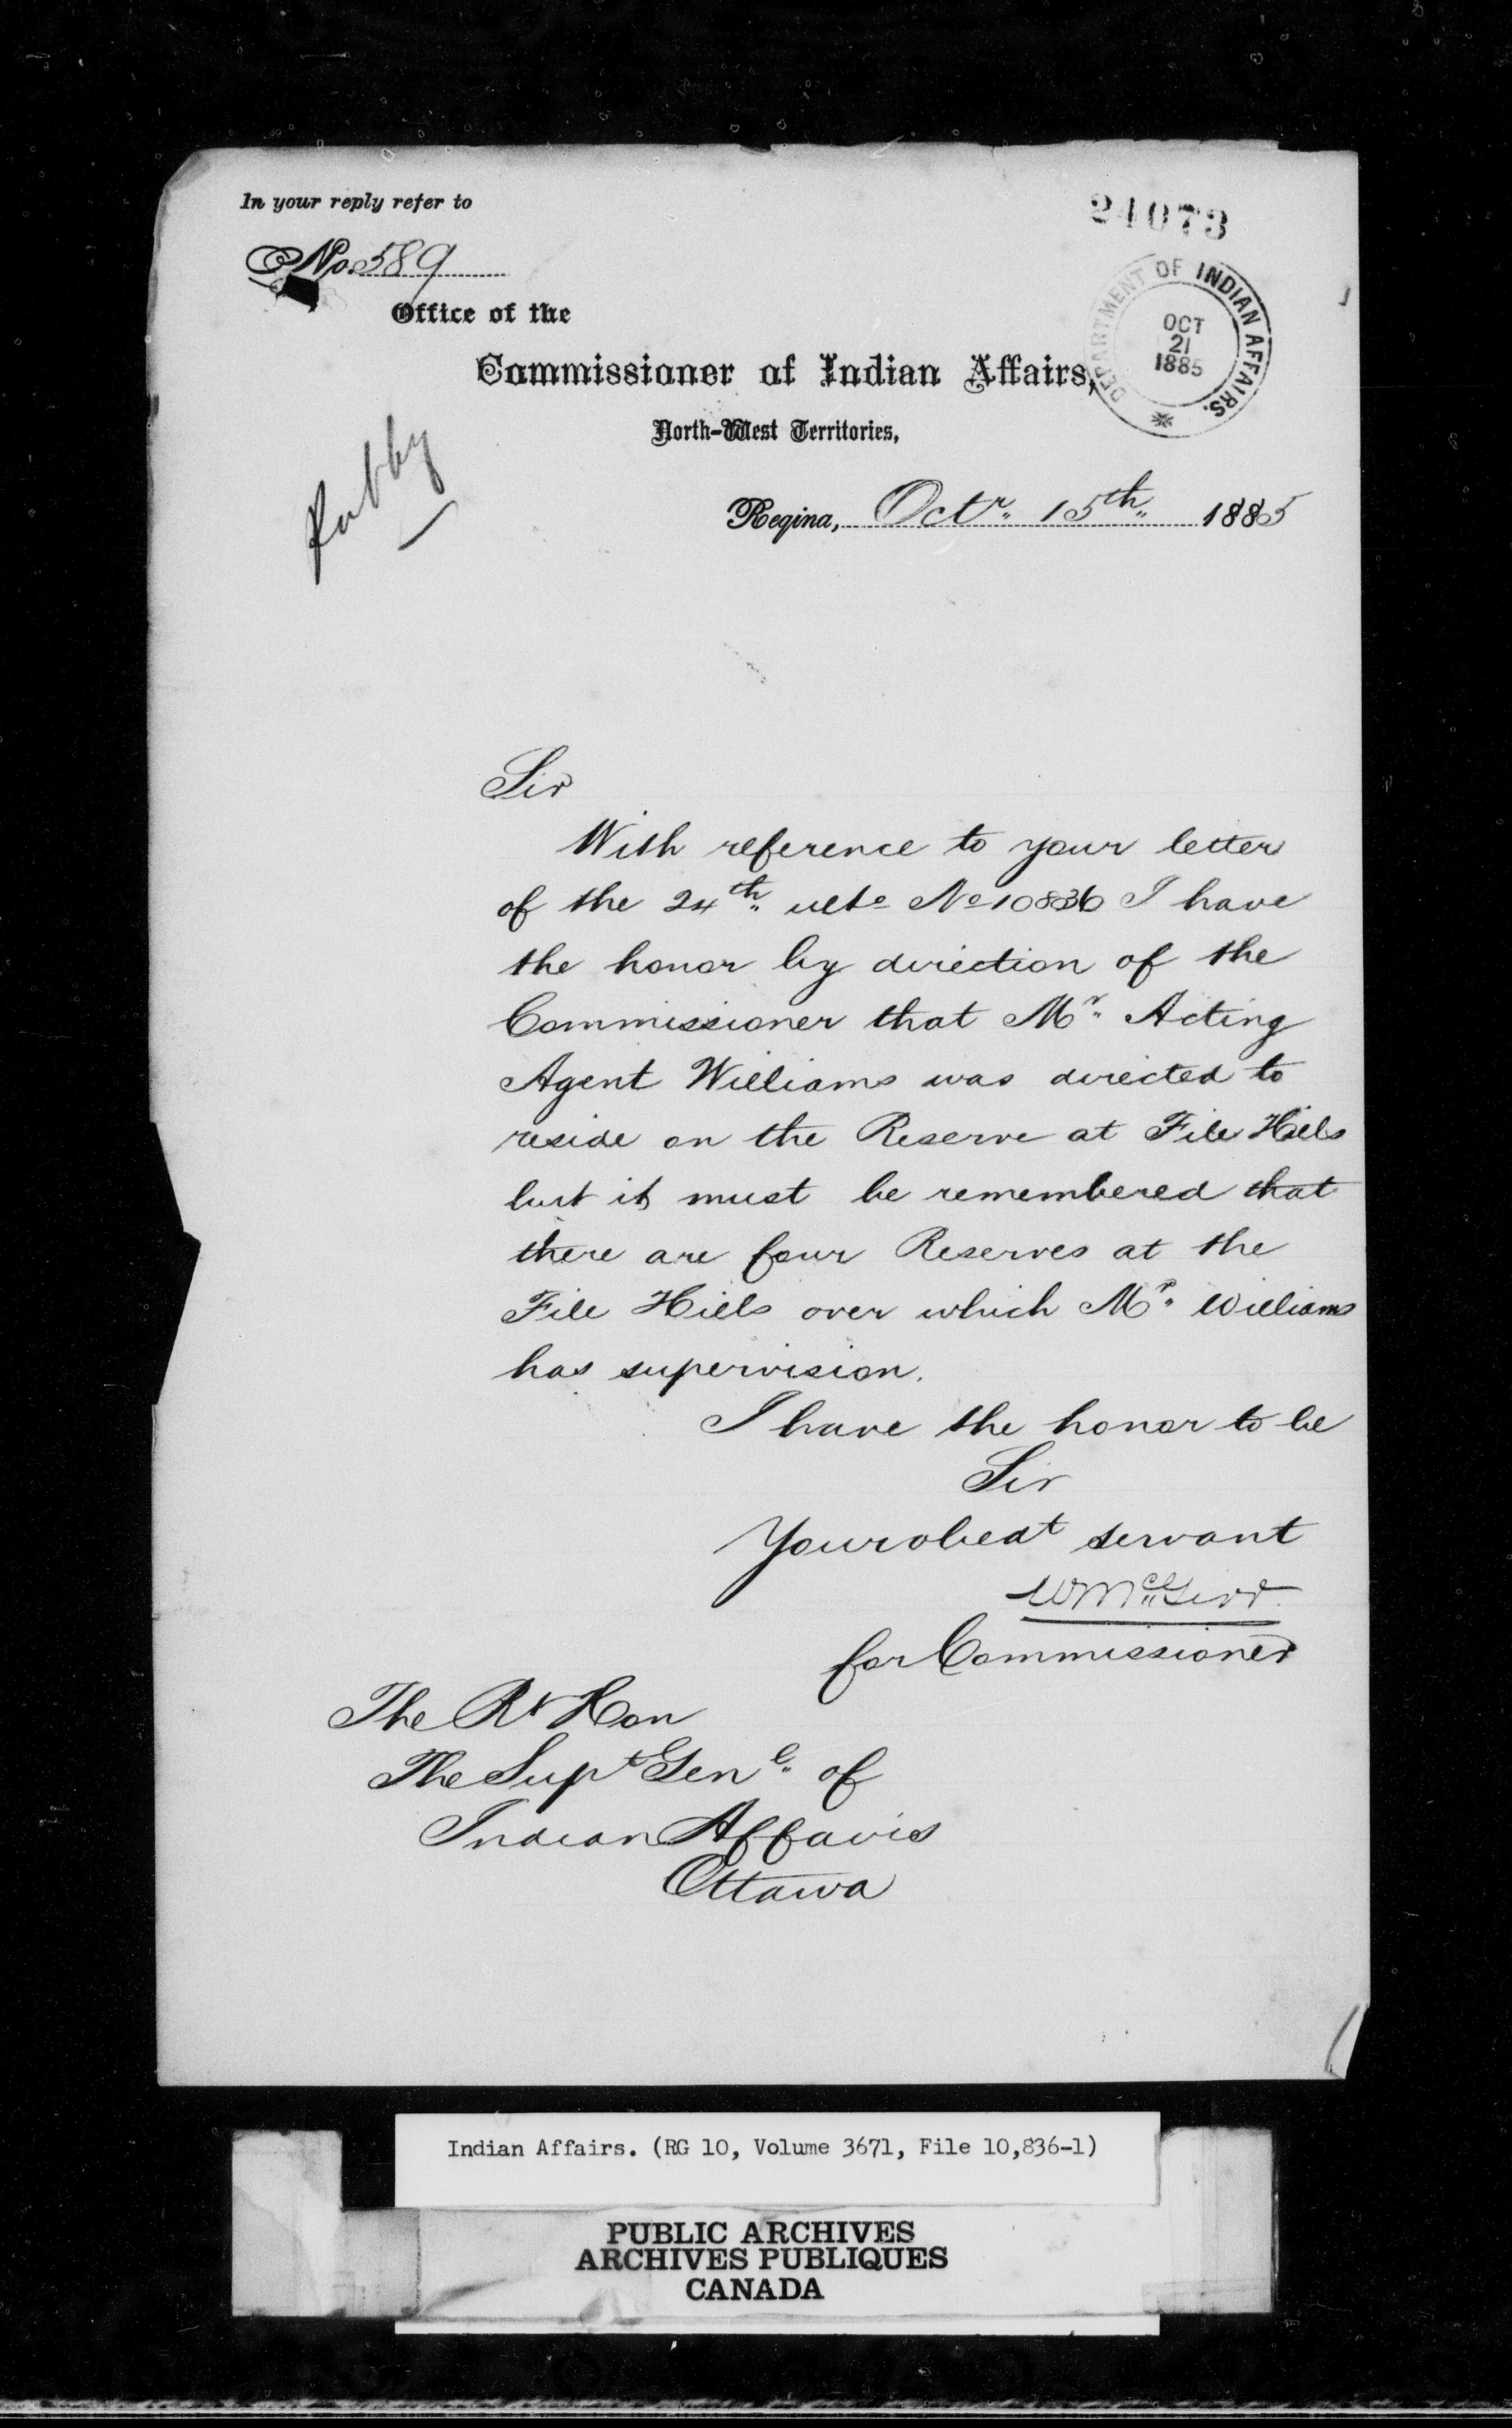 In your reply refer to
No. 589
24073
DEPARTMENT OF INDIAN AFFAIRS.
OCT
21
1885
Office of the
Commissioner of Indian Affairs,
North-West Territories,
Regina, Octr. 15th. 1885
Sir
With reference to your letter
of the 24th. ulto No 10836 I have
the honor by direction of the
Commissioner that Mr. Acting
Agent Williams was directed to
reside on the Reserve at File Hills
but it must be remembered that
there are four Reserves at the
File Hills over which Mr. Williams
has supervision.
I have the honor to be
Sir
Your obedt servant
for Commissioner
The Rt Hon
The Supt Genl. of
Indian Affairs
Ottawa
Indian Affairs. (RG 10, Volume 3671, File 10,836-1)
PUBLIC ARCHIVES
ARCHIVES PUBLIQUES
CANADA